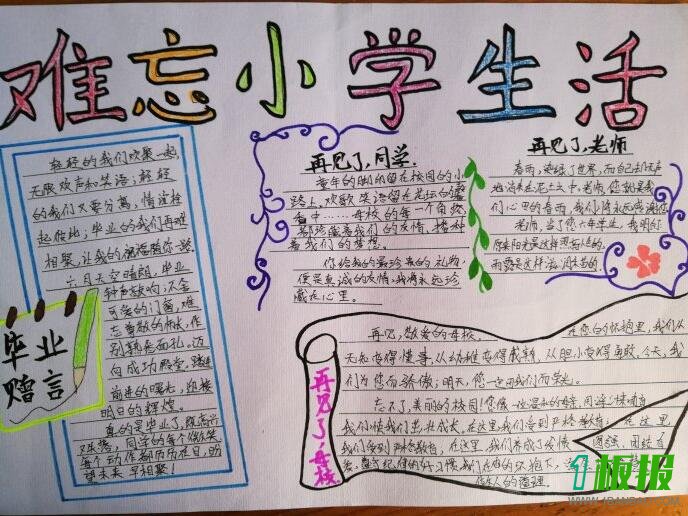 难忘小学生活
轻轻的我们欢聚一起,
无限欢声和笑语;轻轻
的我们又要分离,情谊往
起彼比;毕业的我们再难
相聚,让我的祝福随你
六月天空晴朗,毕业
钟声敲响,不舍
可爱的门窗,难
忘尊敬的师长,作
别熟悉面孔。迈
向成功殿堂,踏进
前进的曙光,迎接
明日的辉煌。
真的是毕业了,
同学的每个微笑
每个动作都历历在目,盼
望未来早相聚!
毕业
赠言
再见了,同学.
童年的脚印留在校园的小
路上,欢歌笑语留在花坛的
香中……母校的每一个角
都珍藏着我们的友情,播种
着我们的梦想。
你给我的最珍贵的礼物,
便是真诚的友情,我将永远珍
藏在心里。
再见了,老师
春雨,染绿了世界,而自己却无声
地消失在泥土之中,老师,您就是我
们心里的春雨,我们将永远感谢您
老师,当了您六年学生,我明白
你来阳光是这样照希望的,
雨露是这样滋润
再见了,母校
再见,敬爱的母校。在您的怀抱里,我们从
无知变得懂事,从幼稚变得成熟,从胆小变得勇敢,今天,我
们为您而骄傲;明天,您一定因我们而荣光。
忘不了,美丽的校园!您像一位温和的母亲,用
我们使我们茁壮成长,在这里,我们受到严格教育;在这里,
我们受到严格教育,在这里,我们养成了
团结
的好习惯
做人的道理。
1板报
WWW.1BANBAO.COM